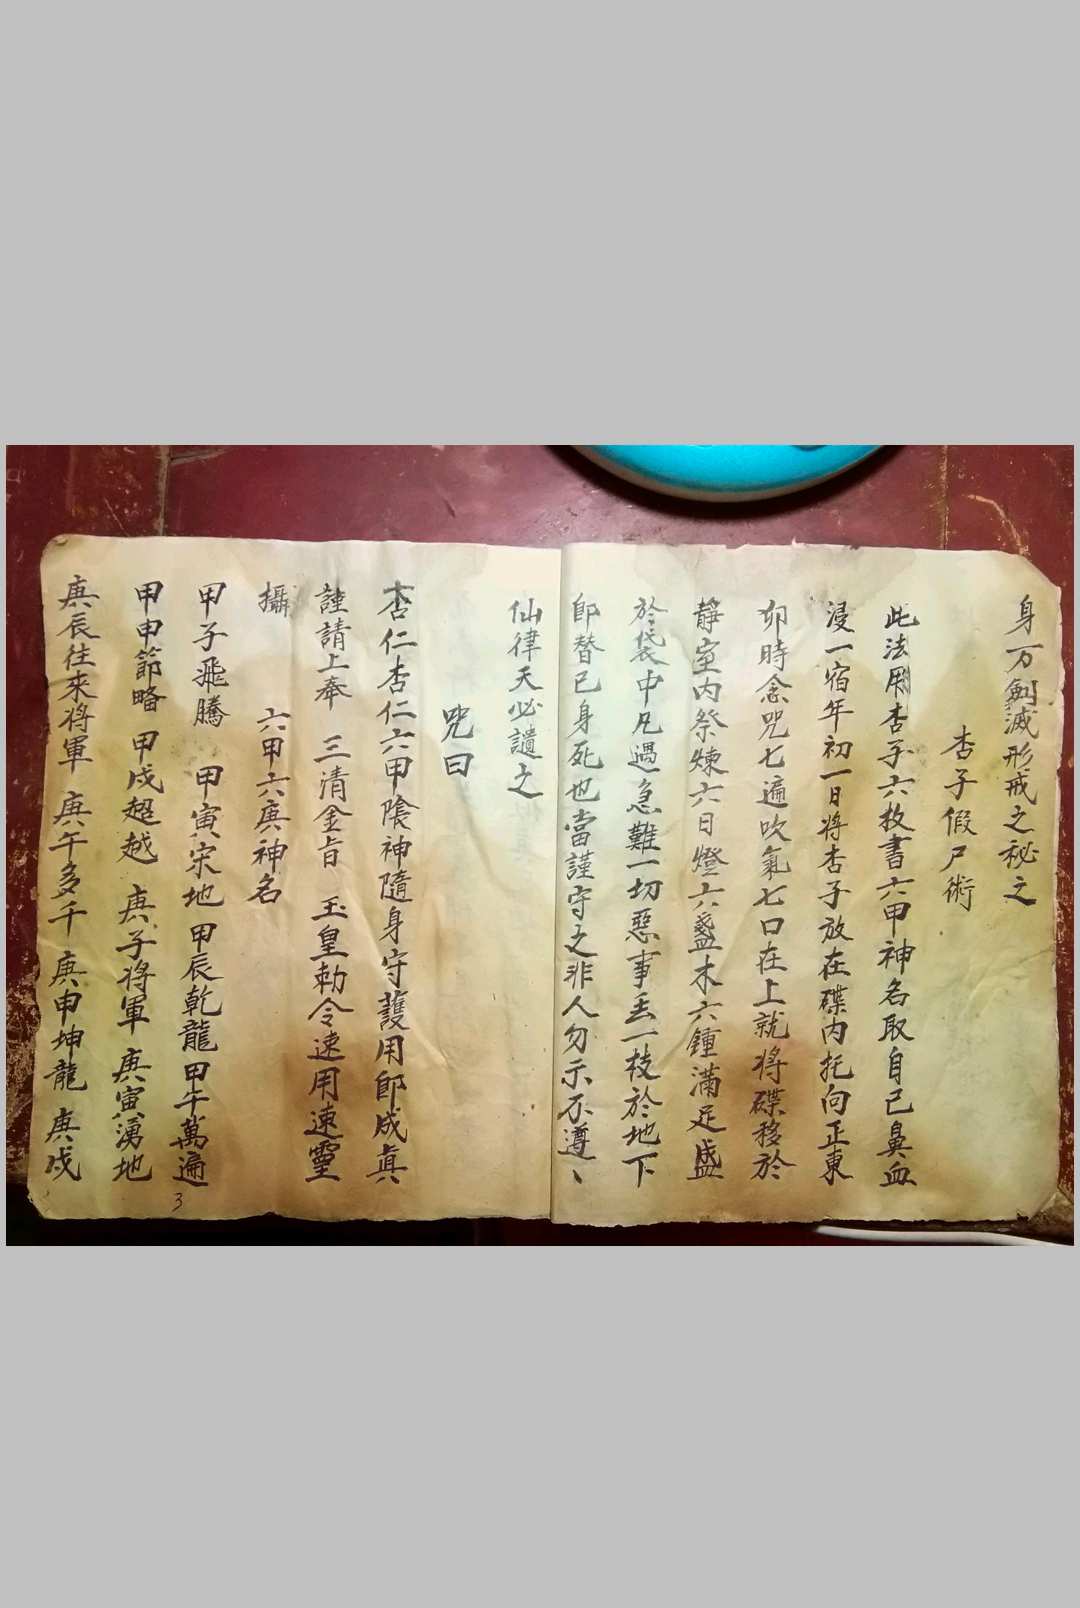 身一万劍滅形戒之秘之
杏子假尸術
此法用杏子六枚書六甲神名取自己鼻血
浸一宿年初一日将杏子放在碟内托向正東
卯時念咒七遍吹氣七口在上就将碟移於
靜室内祭煉六日燈六盞木六鍾滿足盛
於袋中凡遇急難一切惡事去一枝於地下
即替已身死也當謹守之非人勿示不遵丶
仙律天必譴之
咒曰
杏仁杏仁六甲陰神隨身守護用即成眞
謹請上奉 三清金旨 玉皇勅令速用速靈
攝 六甲六庚神名
甲子飛騰 甲寅宋地 甲辰乾龍 甲午萬遍
甲申節略 甲戌超越 庚子将軍 庚寅湧地
庚辰往來将軍 庚午多千 庚申坤龍 庚戌
3